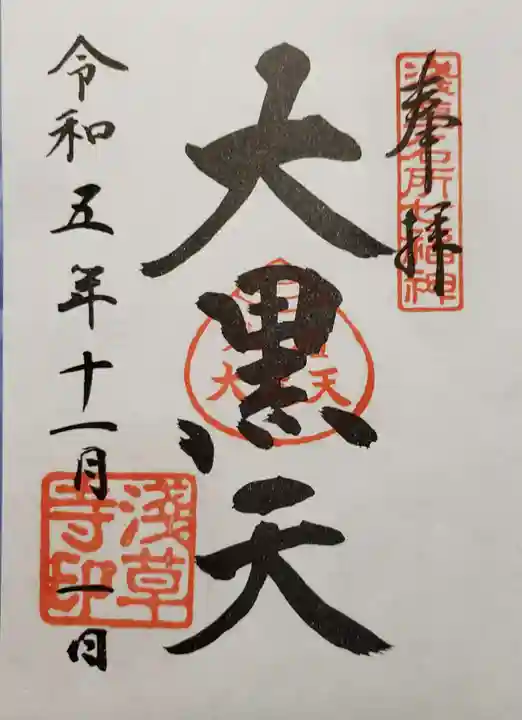 奉拝
淺草名所七福神
大黒天
令和五年十一月一日
淺草寺印